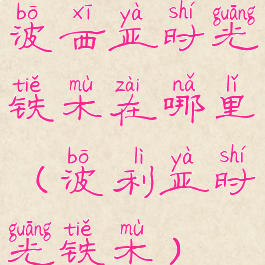 bō xī yà shí guāng
波西亚时光
tiě mù zài nǎ lǐ
铁木在哪里
bō lì yà shí
（波利亚时
guāng tiě mù
光铁木）